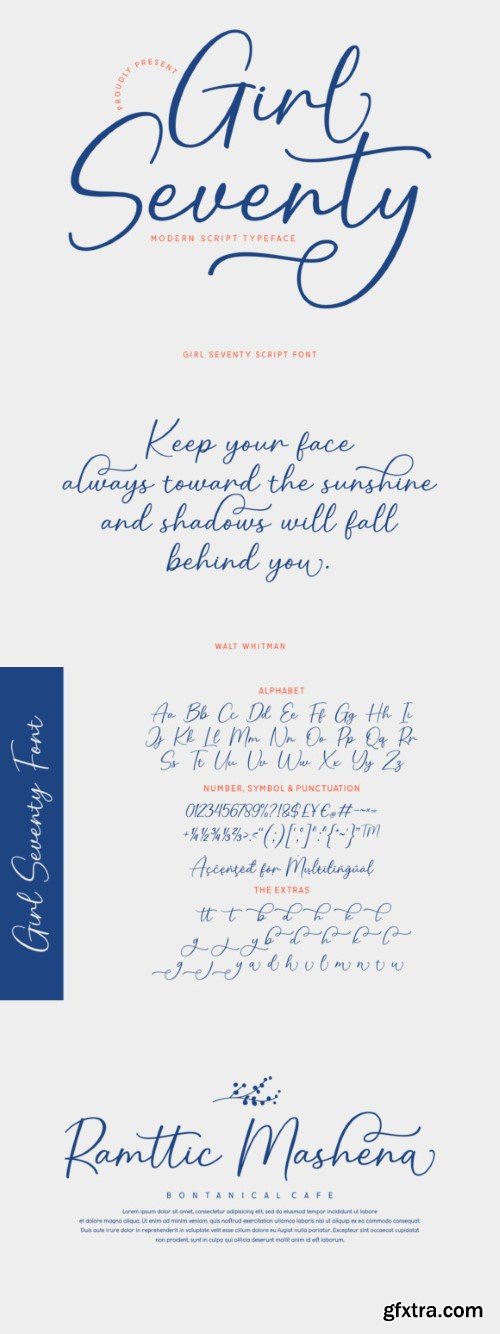 PROUDLY PRESENT
Girl
Seventy
MODERN SCRIPT TYPEFACE
GIRL SEVENTY SCRIPT FONT
Keep your face
always toward the sunshine
and shadows will fall
behind you.
WALT WHITMAN
Girl Seventy Font
ALPHABET
Aa Bb Cc Dd Ee Ff Gg Hh Ii
Jj Kk Ll Mm Nn Oo Pp Qq Rr
Ss Tt Uu Vv Ww Xx Yy Zz
NUMBER, SYMBOL & PUNCTUATION
0123456789%?!&$£¥€@#-~×=
Accented for Multilingual
THE EXTRAS
tt t b d h k l
g j y b d h k l
g j y a d h u l m n t u
Ramttic Mashena
BONTANICAL CAFE
Lorem ipsum dolor sit amet, consectetur adipisicing elit, sed do eiusmod tempor incididunt ut labore
et dolore magna aliqua. Ut enim ad minim veniam, quis nostrud exercitation ullamco laboris nisi ut aliquip ex ea commodo consequat.
Duis aute irure dolor in reprehenderit in voluptate velit esse cillum dolore eu fugiat nulla pariatur. Excepteur sint occaecat cupidatat
non proident, sunt in culpa qui officia deserunt mollit anim id est laborum.
gfxtra.com